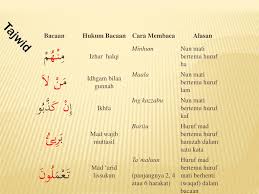 Tajwid
Bacaan Hukum Bacaan Cara Membaca Alasan
مِنْهُمْ Izhar halqi Minhum Nun mati
bertemu huruf
ha
مَنْ لاَ Idhgam bilaa
gunnah Mala Nun mati
bertemu huruf
lam
إِنْ كَذَّبُو Ikhfa Ing kazzabu Nun mati
bertemu huruf
kaf
بَرِيئُ Mad wajib
muttasil Bariiu Huruf mad
bertemu huruf
hamzah dalam
satu kata
تَعْمَلُونَ Mad 'arid
lissukun Ta'maluun
(panjangnya 2, 4
atau 6 harakat) Huruf mad
bertemu huruf
mati berhenti
(waqaf) dalam
bacaan